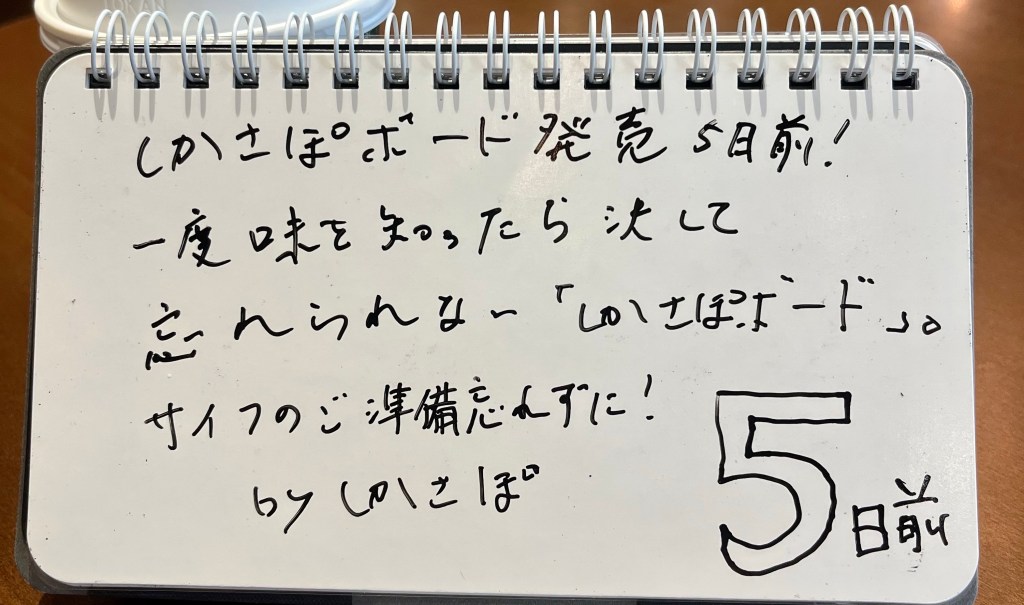 しかさぽボード発売5日前!
一度味を知ったら決して
忘れられない「しかさぽボード」。
サイフのご準備忘れずに!
by しかさぽ
5日前